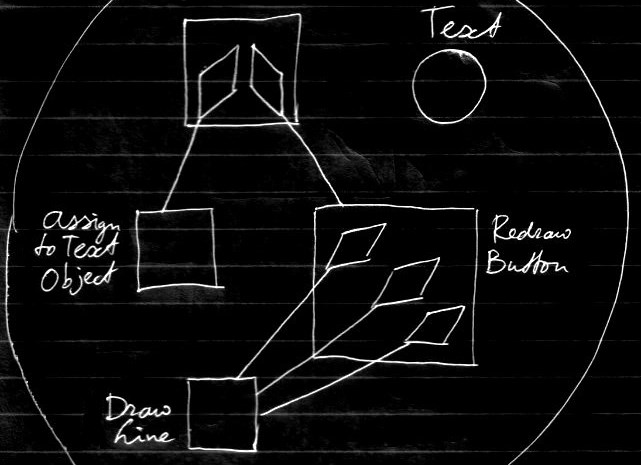 Text
Assign
to Text
Object
Redraw
Button
Draw
Line